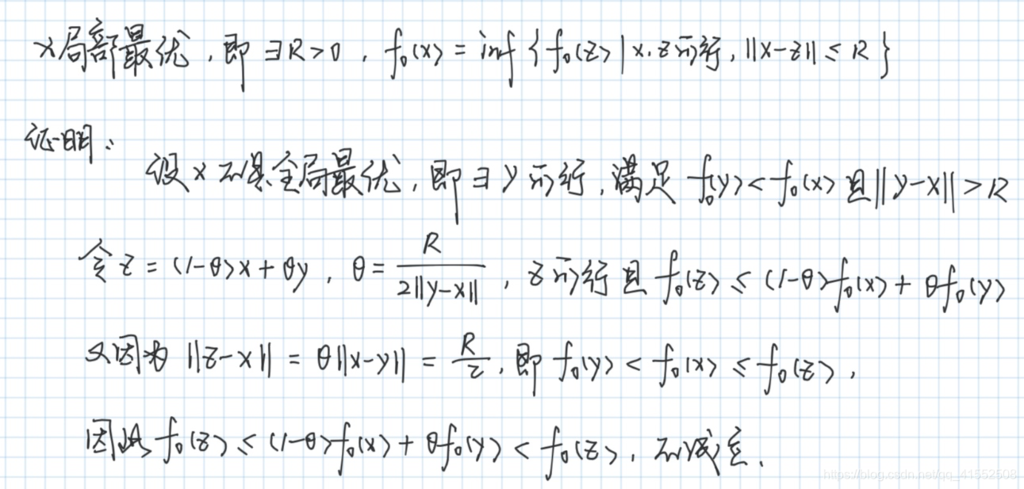 x局部最优，即 ∃R>0，f₀(x) = inf { f₀(z) | x.z可行，||x-z|| ≤ R }
证明：
设 x 不是全局最优，即 ∃ y 可行，满足 f₀(y) < f₀(x) 且 ||y-x|| > R
令 z = (1-θ)x + θy，θ = R / 2||y-x||，z 可行且 f₀(z) ≤ (1-θ)f₀(x) + θf₀(y)
又因为 ||z-x|| = θ||x-y|| = R/2，即 f₀(y) < f₀(x) ≤ f₀(z)，
因此 f₀(z) ≤ (1-θ)f₀(x) + θf₀(y) < f₀(z)，不成立．
https://blog.csdn.net/qq_41552508